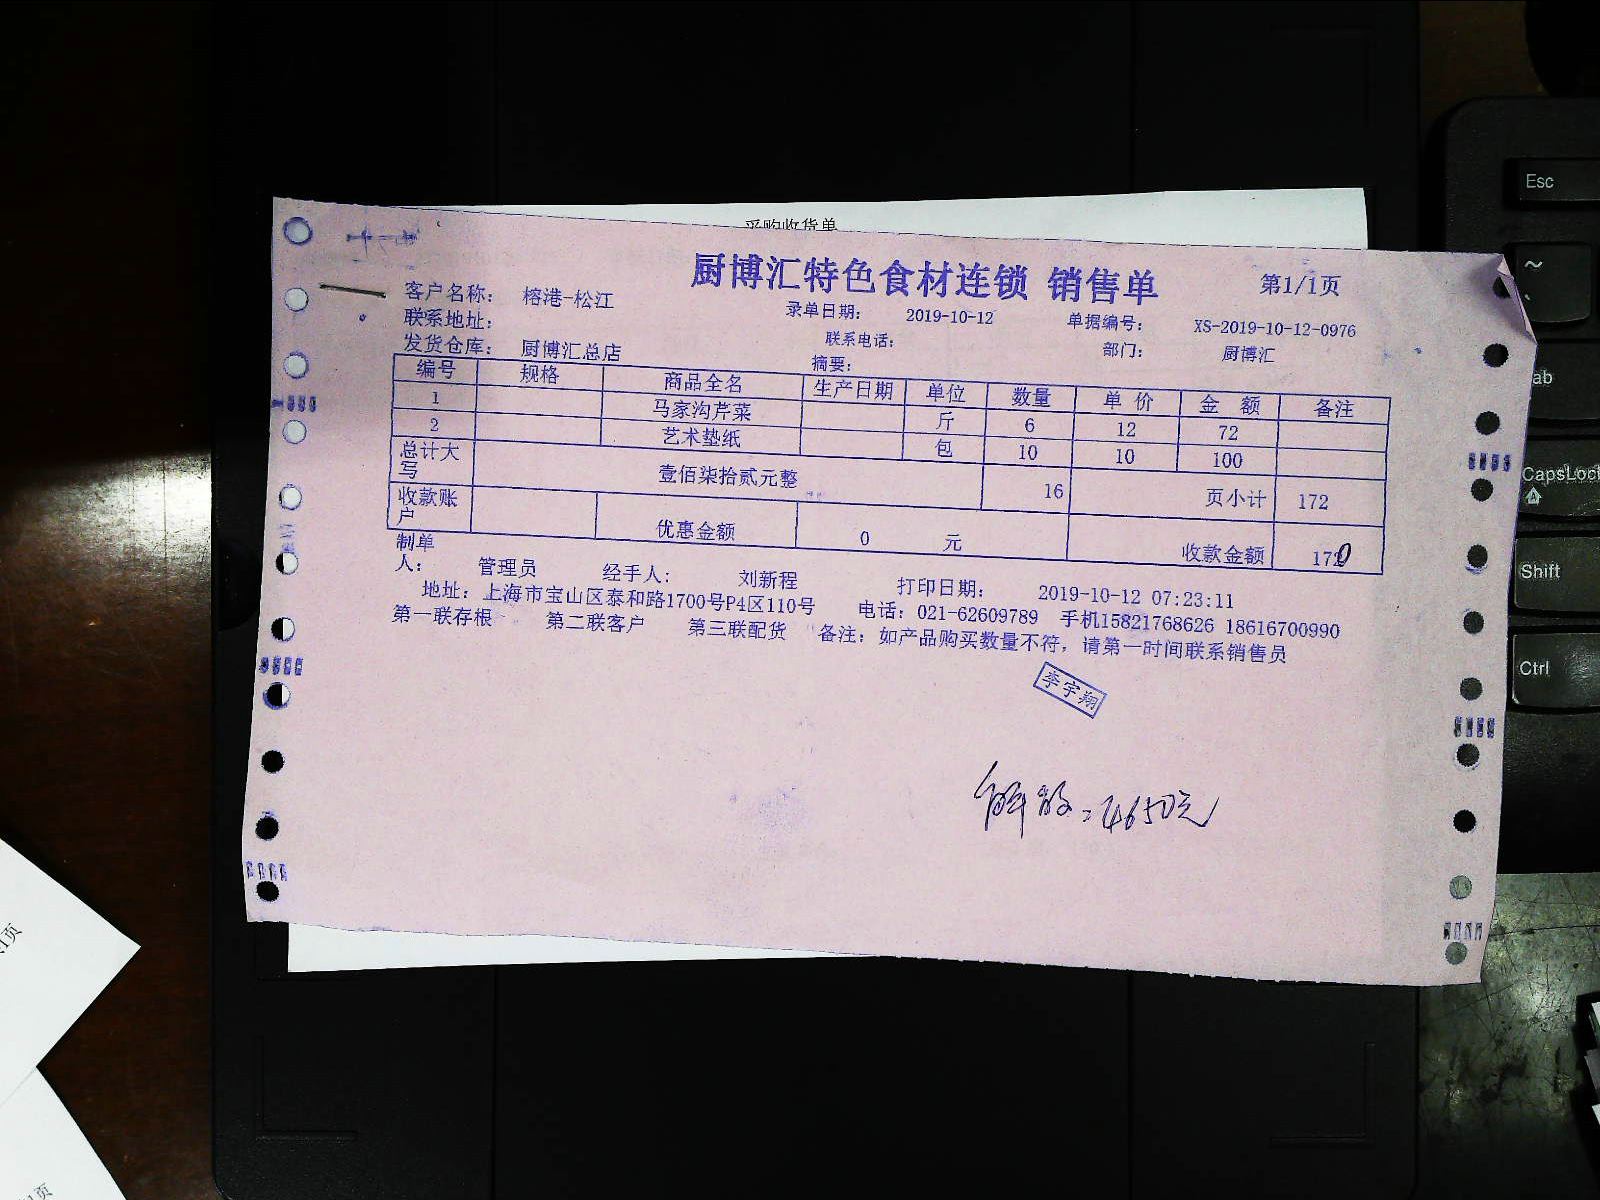 采购收货单
厨博汇特色食材连锁 销售单 第1/1页
客户名称： 榕港-松江 录单日期： 2019-10-12 单据编号： XS-2019-10-12-0976
联系地址： 联系电话： 部门： 厨博汇
发货仓库： 厨博汇总店 摘要：
编号 规格 商品全名 生产日期 单位 数量 单 价 金 额 备注
1 马家沟芹菜 斤 6 12 72
2 艺术垫纸 包 10 10 100
总计大写 壹佰柒拾贰元整 16 页小计 172
收款账户 优惠金额 0 元 收款金额 170
制单人： 管理员 经手人： 刘新程 打印日期： 2019-10-12 07:23:11
地址：上海市宝山区泰和路1700号P4区110号 电话：021-62609789 手机15821768626 18616700990
第一联存根 第二联客户 第三联配货 备注：如产品购买数量不符，请第一时间联系销售员
李宇翔
4650元
Esc
~
ab
CapsLock
Shift
Ctrl
1页
1页